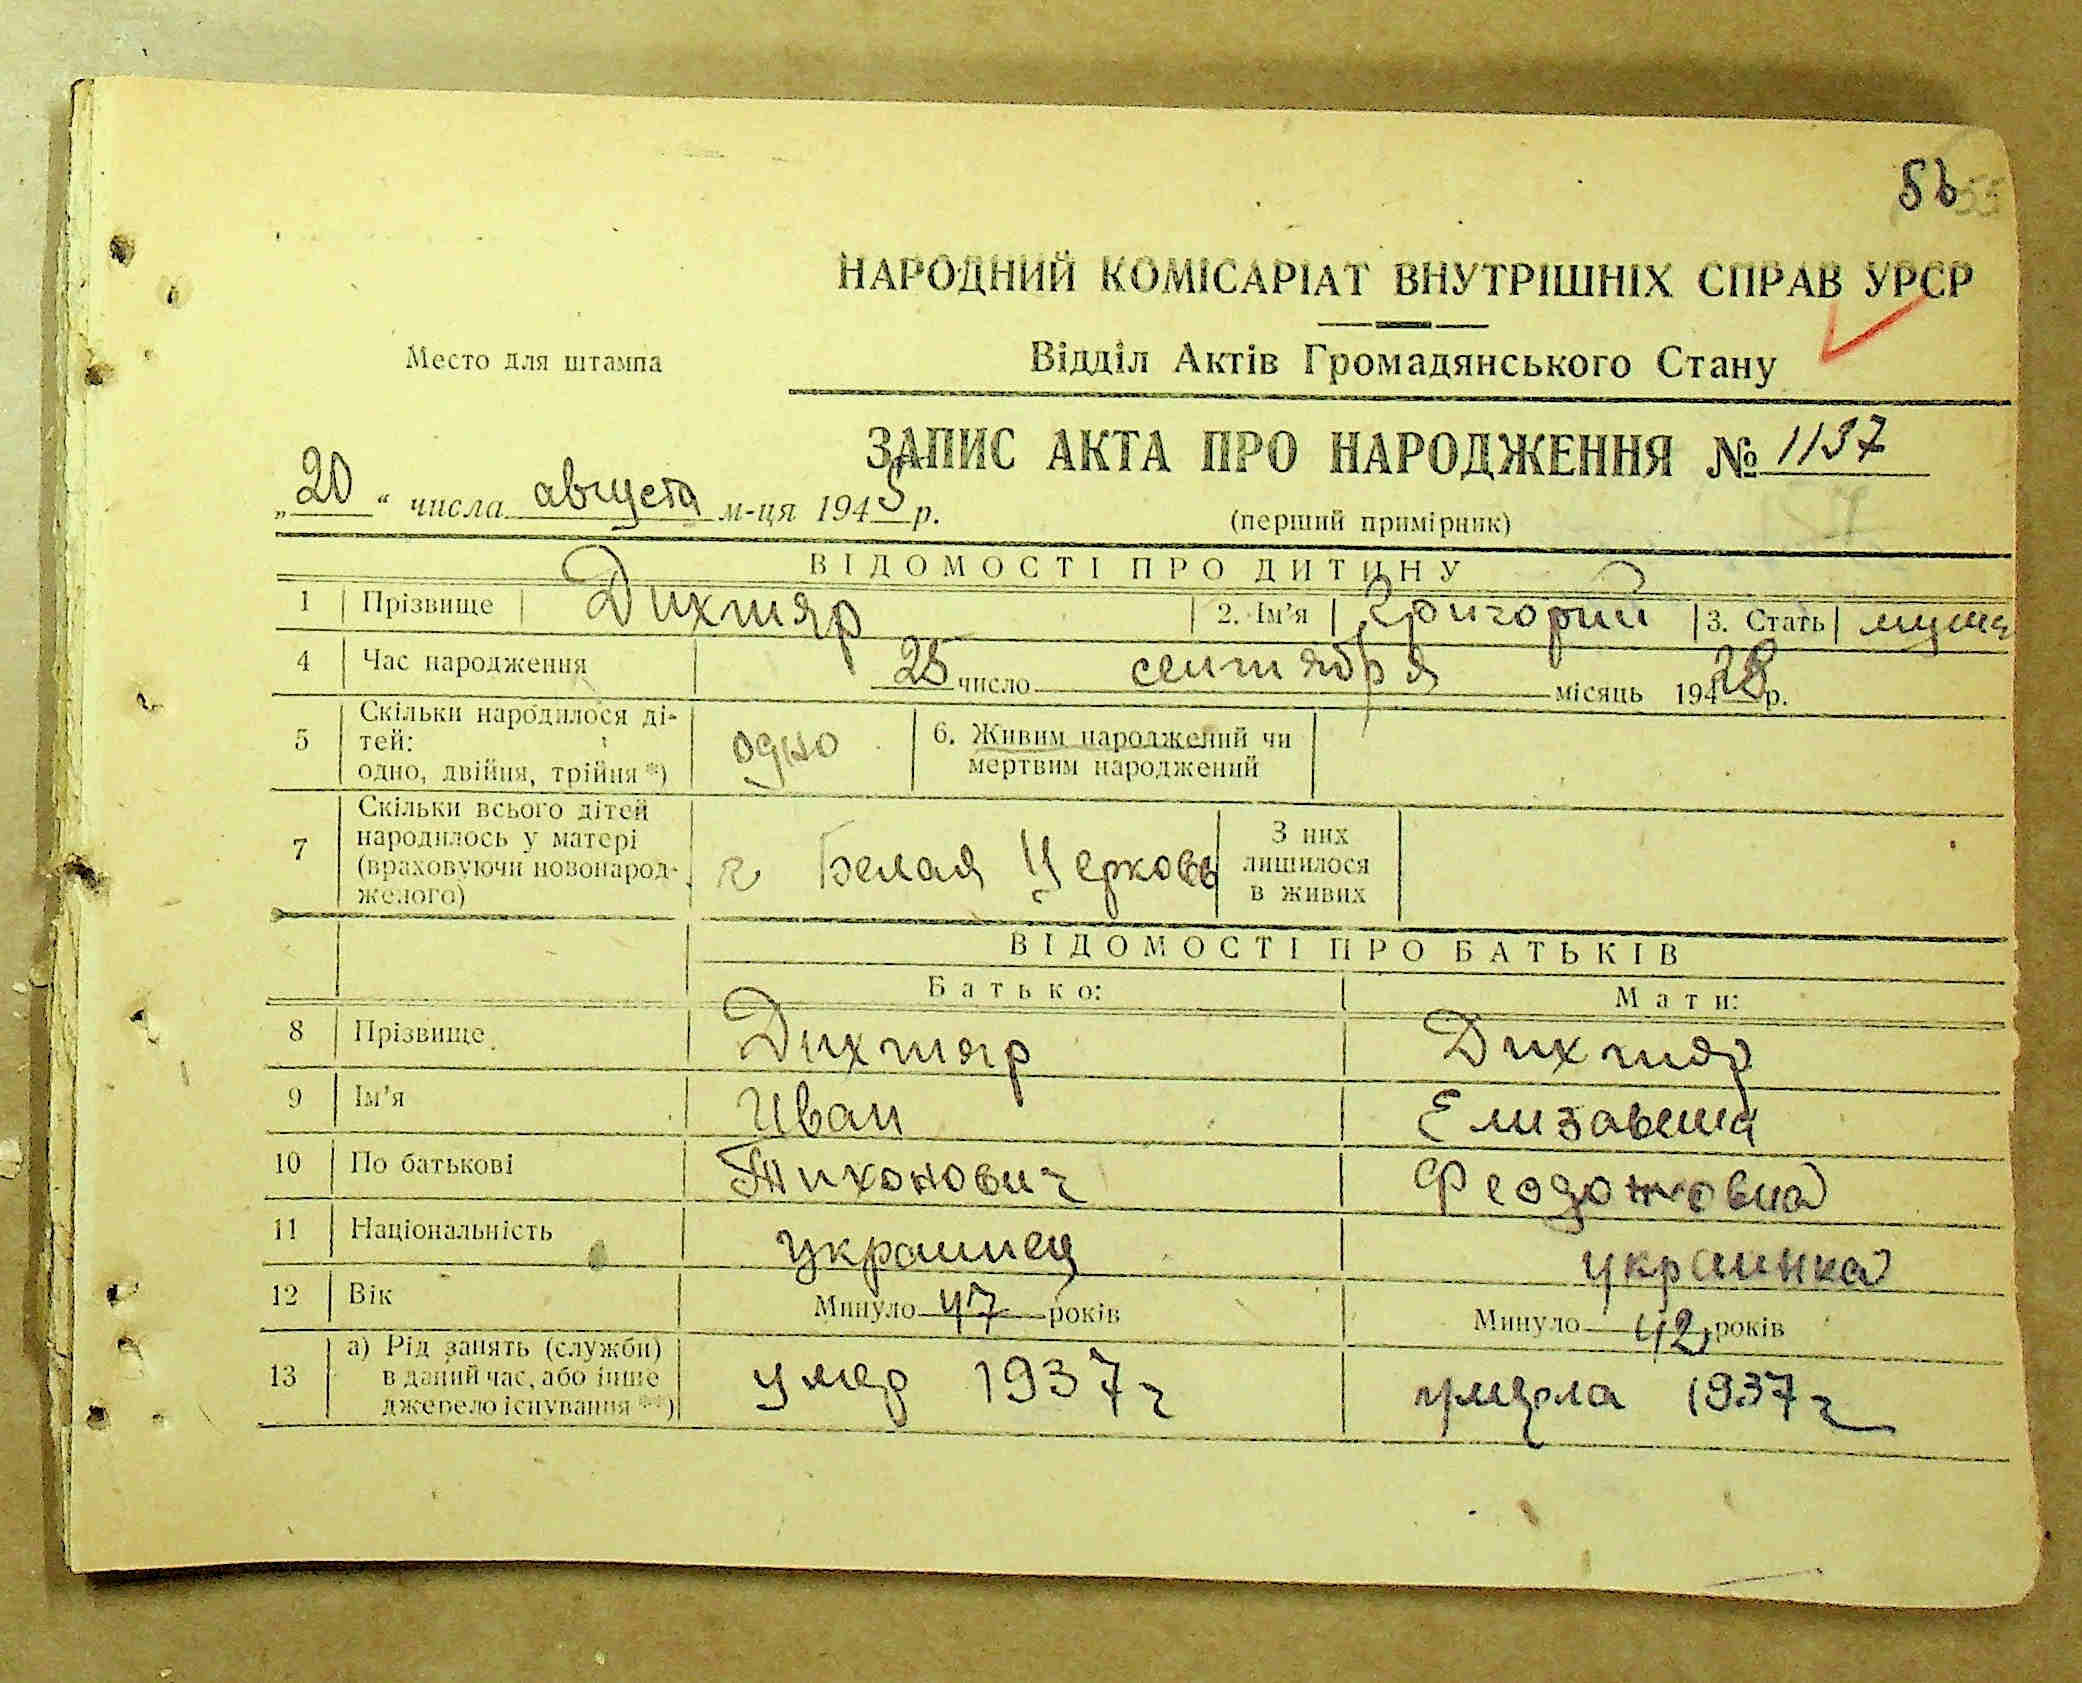 56 55
НАРОДНИЙ КОМІСАРІАТ ВНУТРІШНІХ СПРАВ УРСР
Место для штампа
Відділ Актів Громадянського Стану
ЗАПИС АКТА ПРО НАРОДЖЕННЯ № 1137
„20“ числа августа м-ця 1945 р.
(перший примірник)
ВІДОМОСТІ ПРО ДИТИНУ
1 Прізвище Дихтяр 2. Ім'я Григорий 3. Стать
4 Час народження 25 число сентября місяць 1928 р.
5 Скільки народилося ді-
тей:
одно, двійня, трійня *) одно 6. Живим народжений чи
мертвим народжений
7 Скільки всього дітей
народилось у матері
(враховуючи новонарод-
желого) г Белая Церковь З них
лишилося
в живих
ВІДОМОСТІ ПРО БАТЬКІВ
Батько: Мати:
8 Прізвище Дихтяр Дихтяр
9 Ім'я Иван Елизавета
10 По батькові Тихонович Федотовна
11 Національність украинец украинка
12 Вік Минуло 47 років Минуло 42 років
13 а) Рід занять (служби)
в даний час, або інше
джерело існування **) умер 1937 г умерла 1937 г